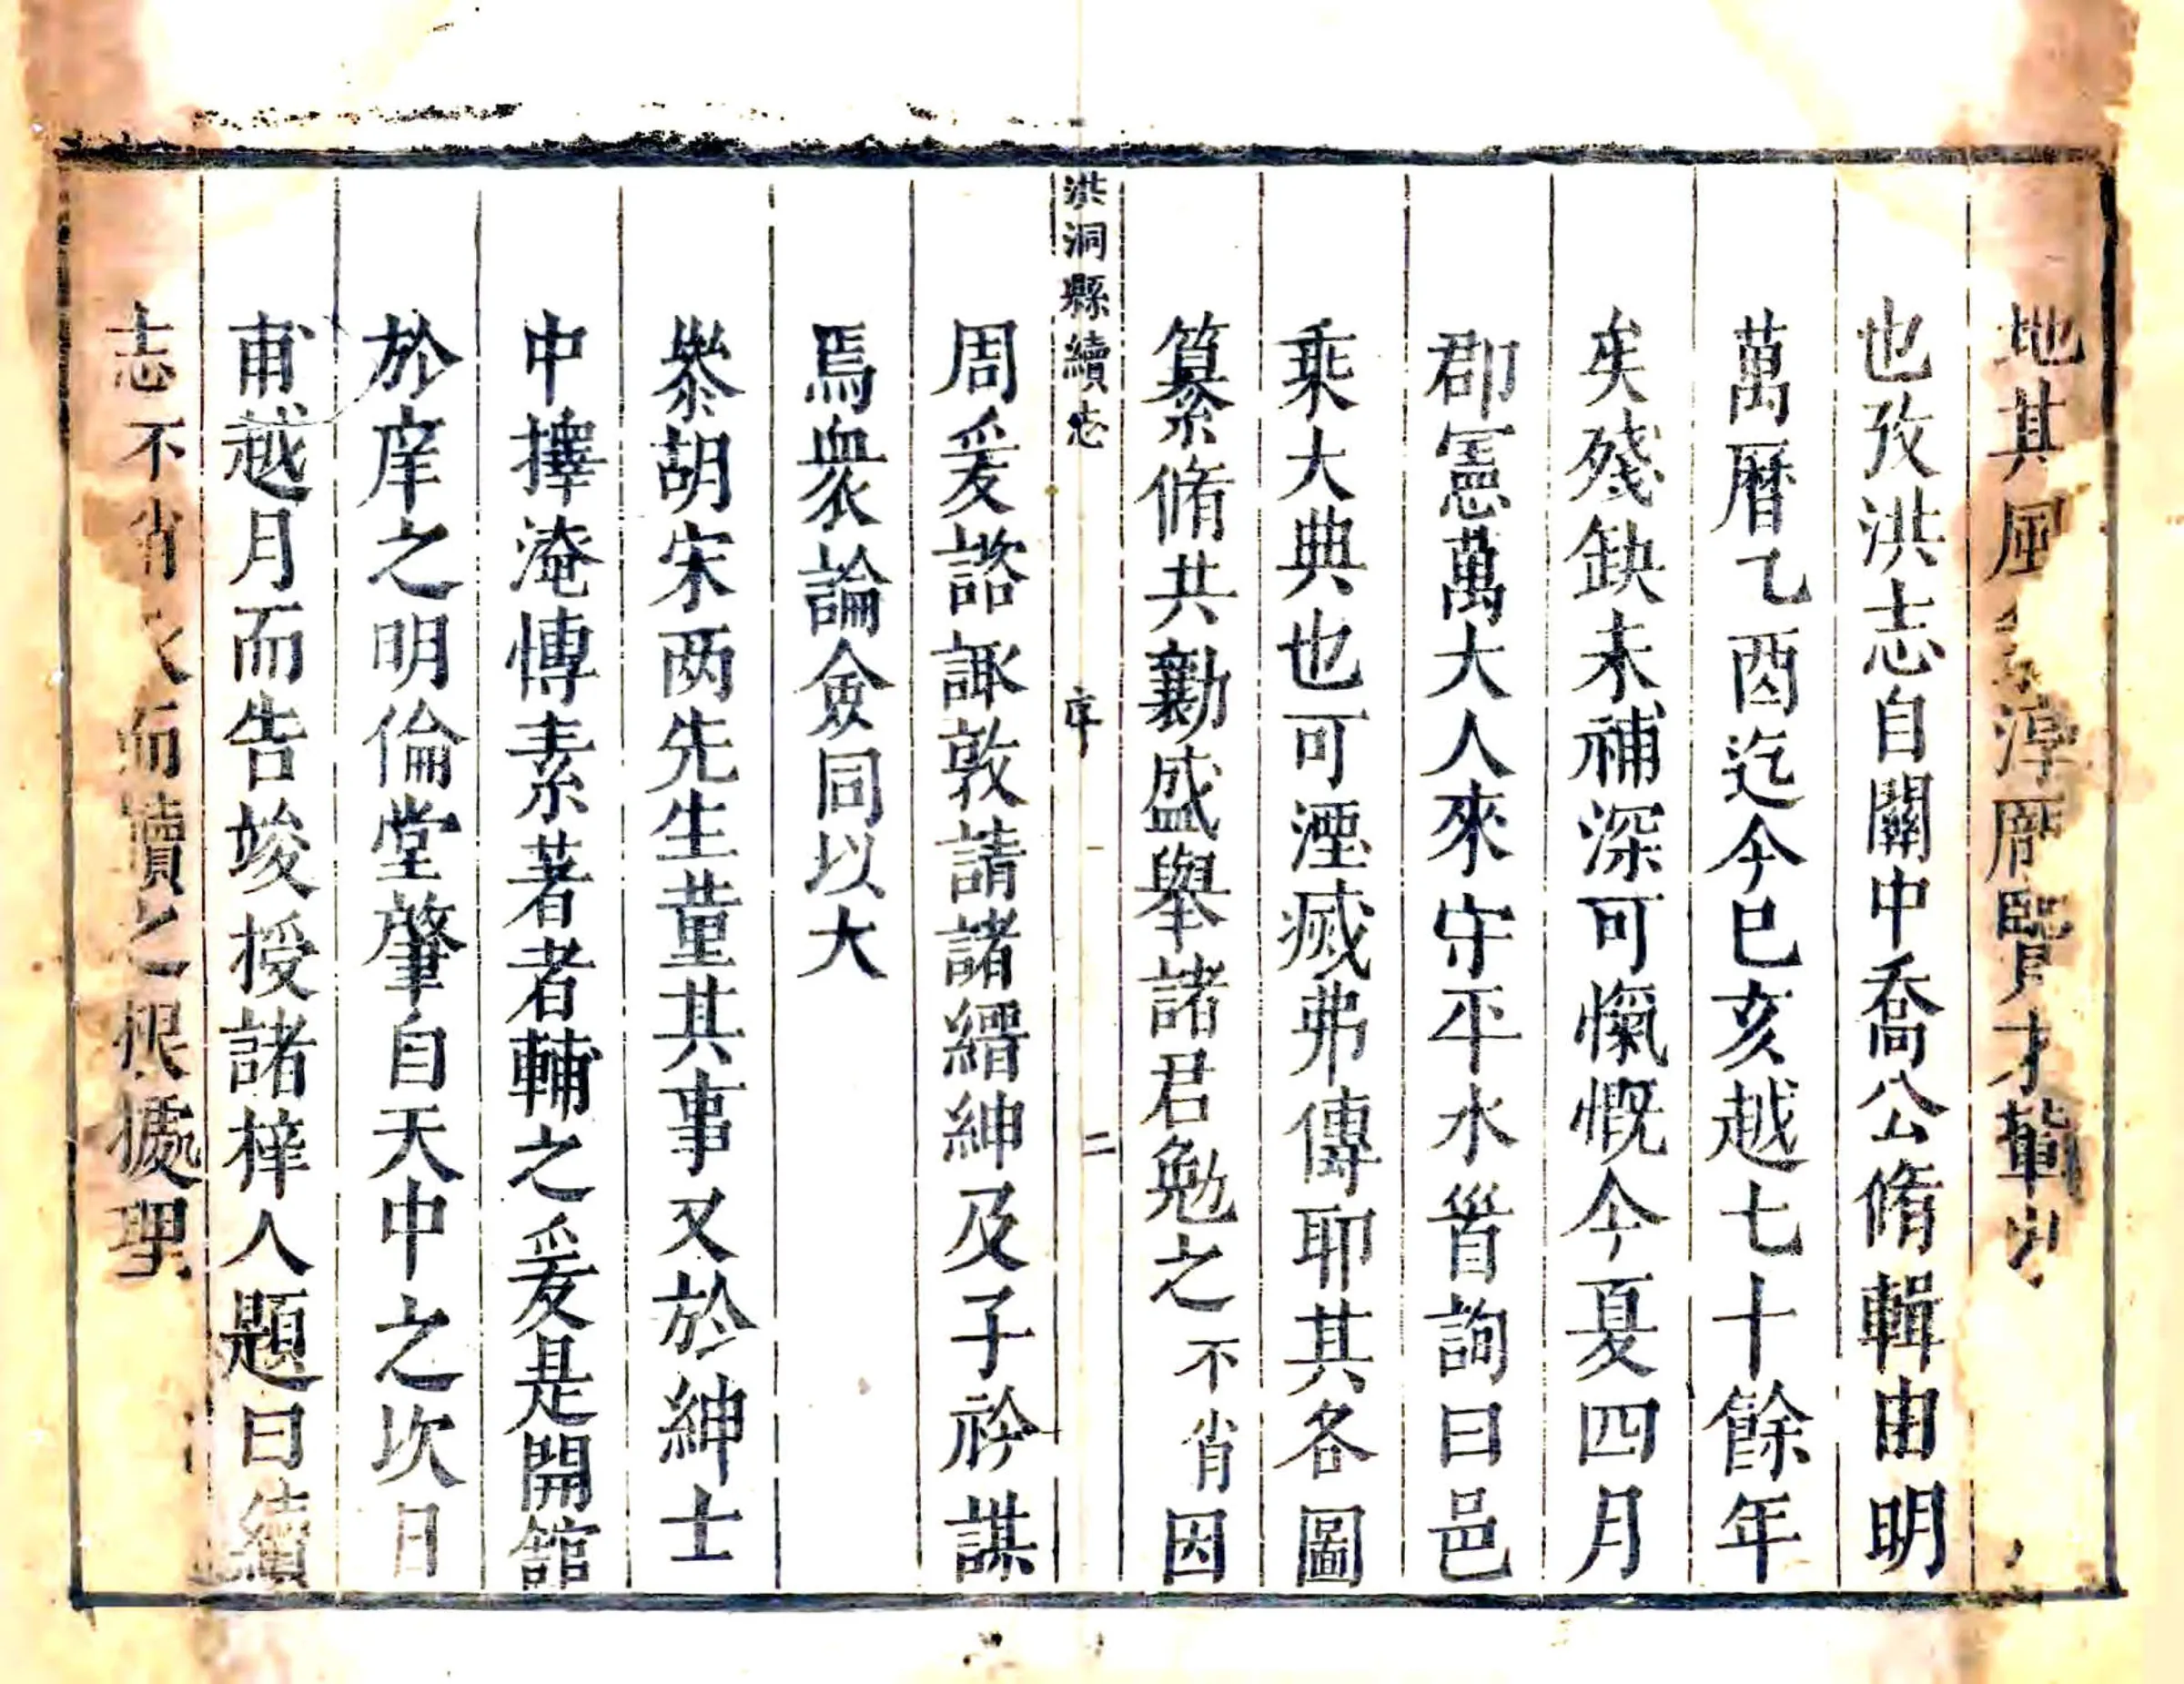 地其風淳厚賢才輩出
也攷洪志自關中喬公脩輯由明
萬曆乙酉迄今巳亥越七十餘年
矣殘缺未補深可愾慨今夏四月
郡憲萬大人來守平水首詢曰邑
乘大典也可湮滅弗傳耶其各圖
纂脩共勷盛舉諸君勉之不肖因
洪洞縣續志 序 二
周爰諮諏敦請諸縉紳及子衿謀
焉衆論僉同以大
叅胡宋两先生董其事又於紳士
中擇淹博素著者輔之爰是開舘
於庠之明倫堂肇自天中之次日
甫越月而告竣授諸梓人題曰續
志不肖而讀之根據理